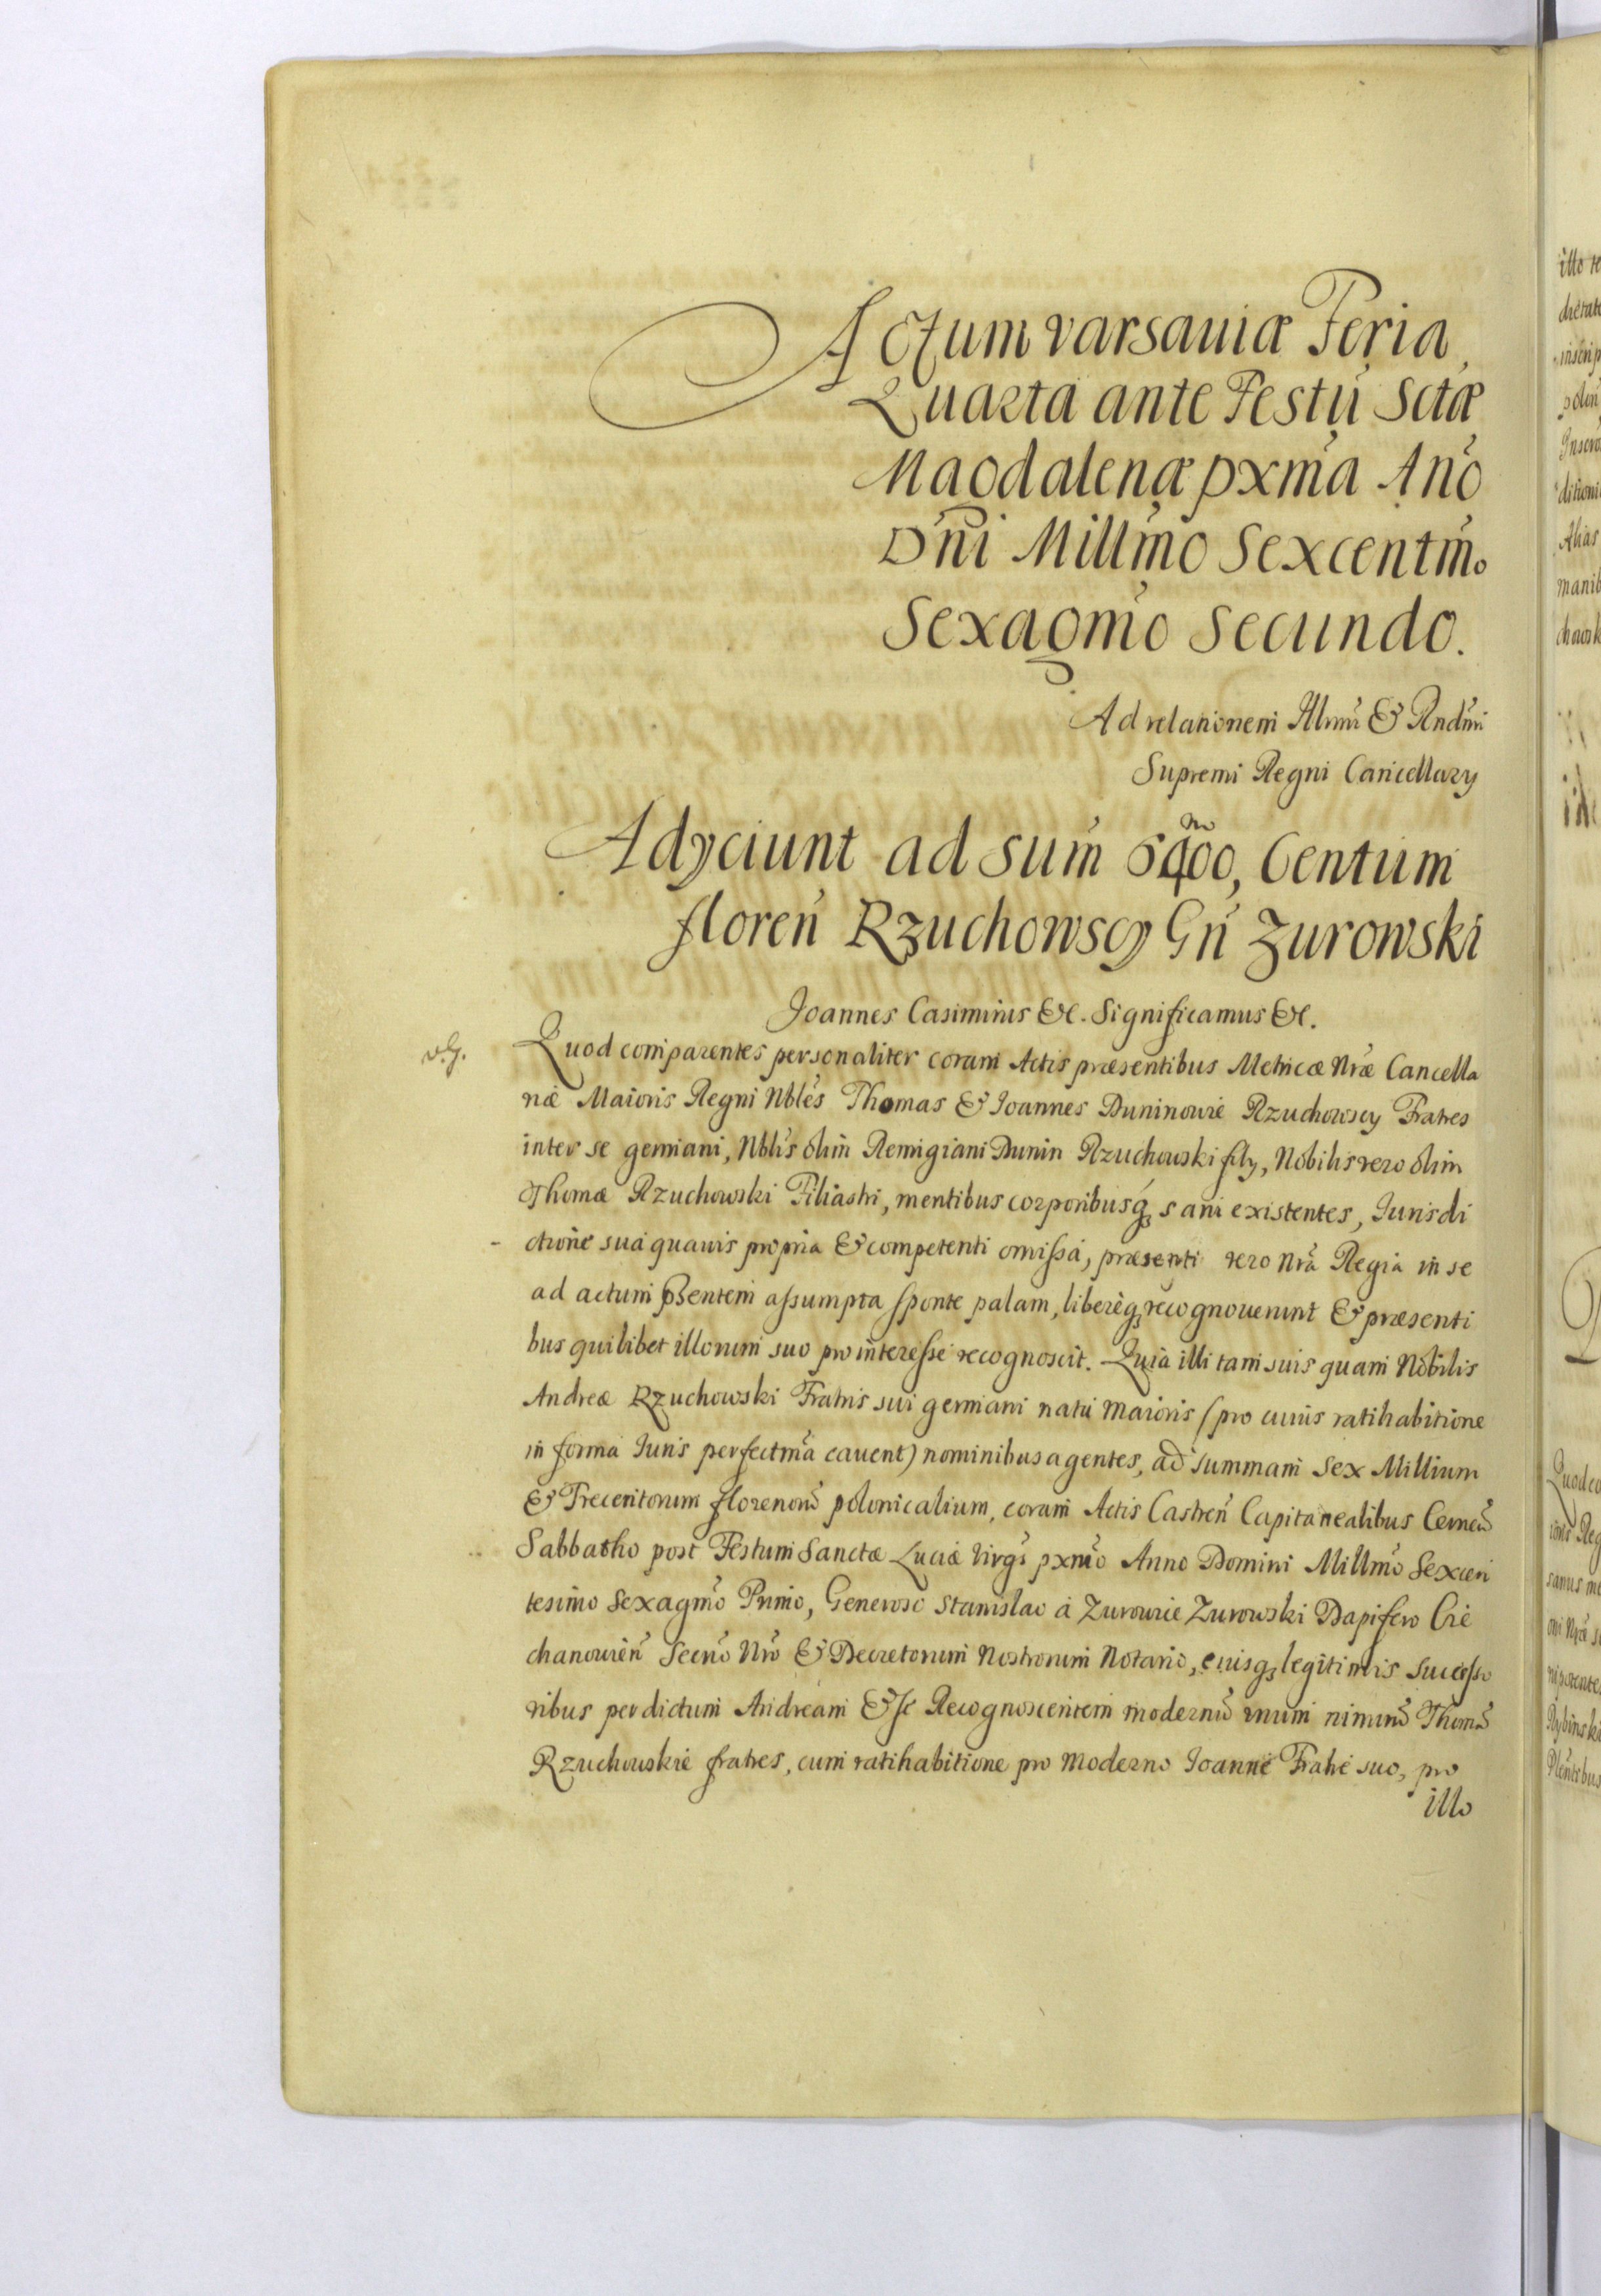 Actum varsaviæ Feria
Quarta ante Festũ Sctæ
Magdalenæ pxm̃a Ãno
Dñi Millm̃o Sexcentm̃o
Sexagm̃o Secundo.
Ad relationem Illmi & Rndmi
Supremi Regni Cancellary
Adyciunt ad sum̃ 6400, Centum
floreñ Rzuchowscy Gñ Zurowski
Joannes Casimirus &c. Significamus &c.
v.G.
Quod comparentes personaliter coram Actis præsentibus Metricæ Nr̃æ Cancella
riæ Maioris Regni Nbles Thomas & Joannes Duninowie Rzuchowscy Fratres
inter se germani, Nblis olim Remigiani Dunin Rzuchowski fily, Nobilis vero olim
Thomæ Rzuchowski Filiastri, mentibus corporibusq; sani existentes, Iurisdi
ctione sua quavis propria & competenti omissa, præsenti vero Nr̃a Regia in se
ad actum p̃sentem assumpta sponte palam, libereq; recognoverunt & præsenti
bus quilibet illorum suo pro interesse recognoscit. Quia illi tam suis quam Nobilis
Andreæ Rzuchowski Fratris sui germani natu maioris (pro cuius ratihabitione
in forma Iuris perfectm̃a cavent) nominibus agentes, ad summam Sex Millium
& Trecentorum florenorũ polonicalium, coram Actis Castreñ Capitanealibus Cerneñ
Sabbatho post Festum Sanctæ Luciæ Virgi͂s pxm̃o Anno Domini Millm̃o Sexcen
tesimo Sexagm̃o Primo, Generoso Stanislao a Zurowie Zurowski Dapifero Cie
chanowieñ Secrio Nr̃o & Decretorum Nostrorum Notario, eiusq; legitimis Successo
ribus per dictum Andream & se Recognoscentem modernũ unum nimirũ Thomã
Rzuchowskie fratres, cum ratihabitione pro moderno Joanne Fratre suo, pro
illo